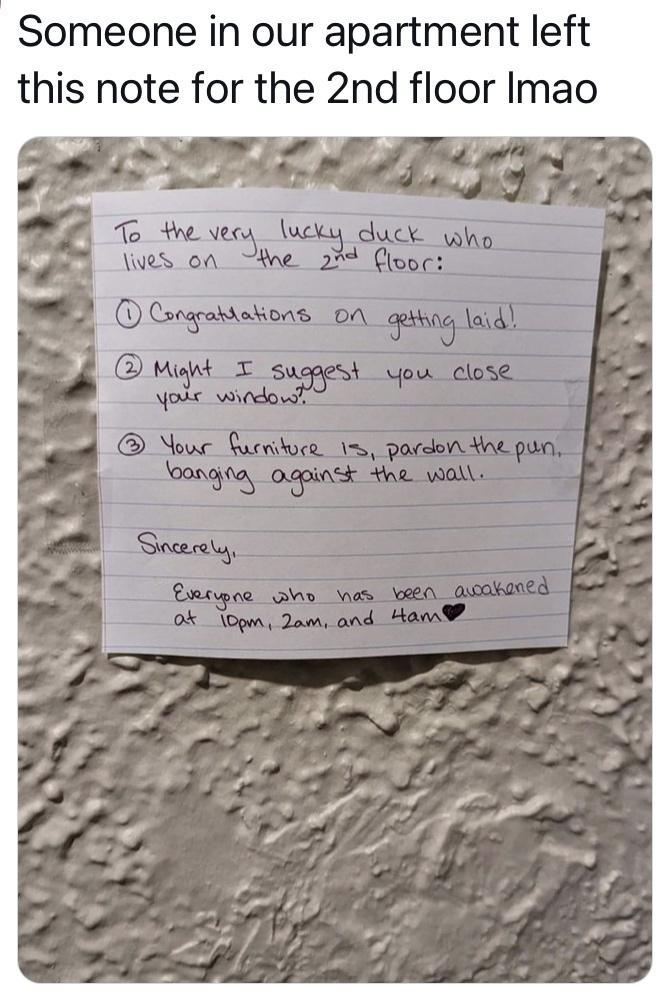 Someone in our apartment left
this note for the 2nd floor lmao
To the very lucky duck who
lives on the 2nd floor:
① Congratulations on getting laid!
② Might I suggest you close
your window?
③ Your furniture is, pardon the pun,
banging against the wall.
Sincerely,
Everyone who has been awakened
at 10pm, 2am, and 4am♥